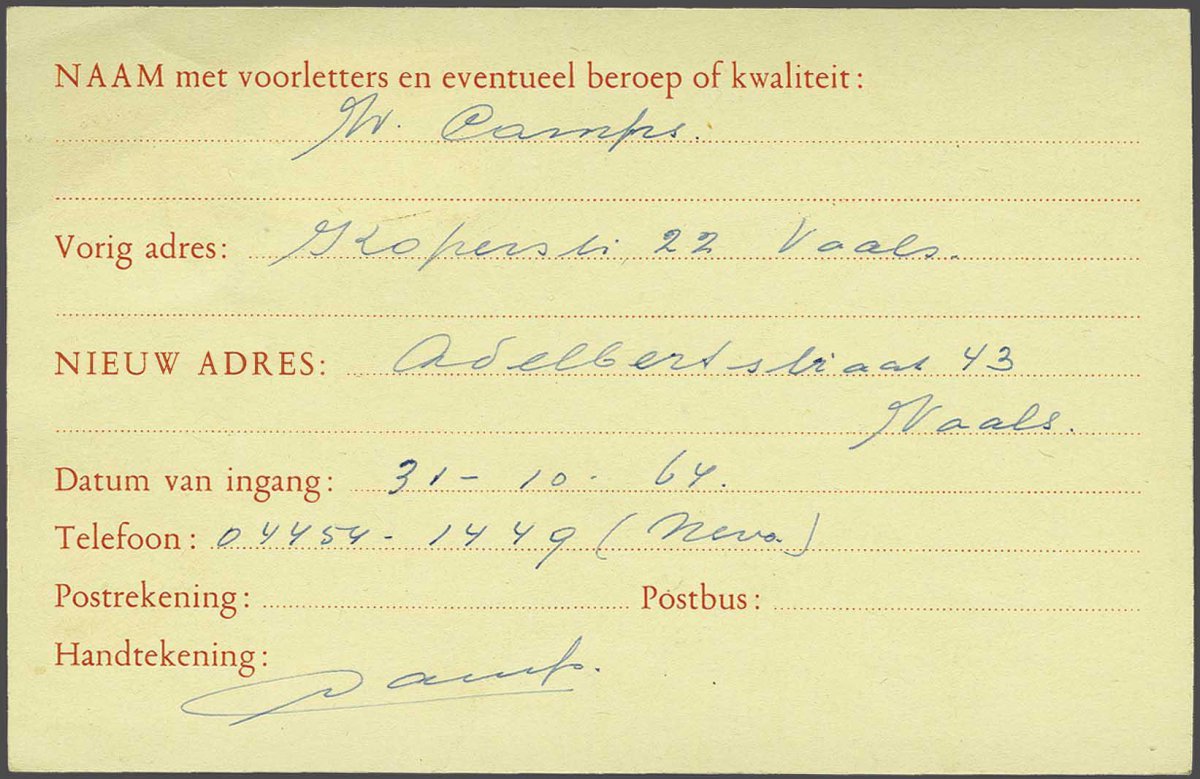 NAAM met voorletters en eventueel beroep of kwaliteit:
W. Camps.
Vorig adres: Koperstr, 22 Vaals.
NIEUW ADRES: Adelbertstraat 43
Vaals.
Datum van ingang: 31-10-64.
Telefoon: 04454-1449 (Neva)
Postrekening: Postbus:
Handtekening: Camps.